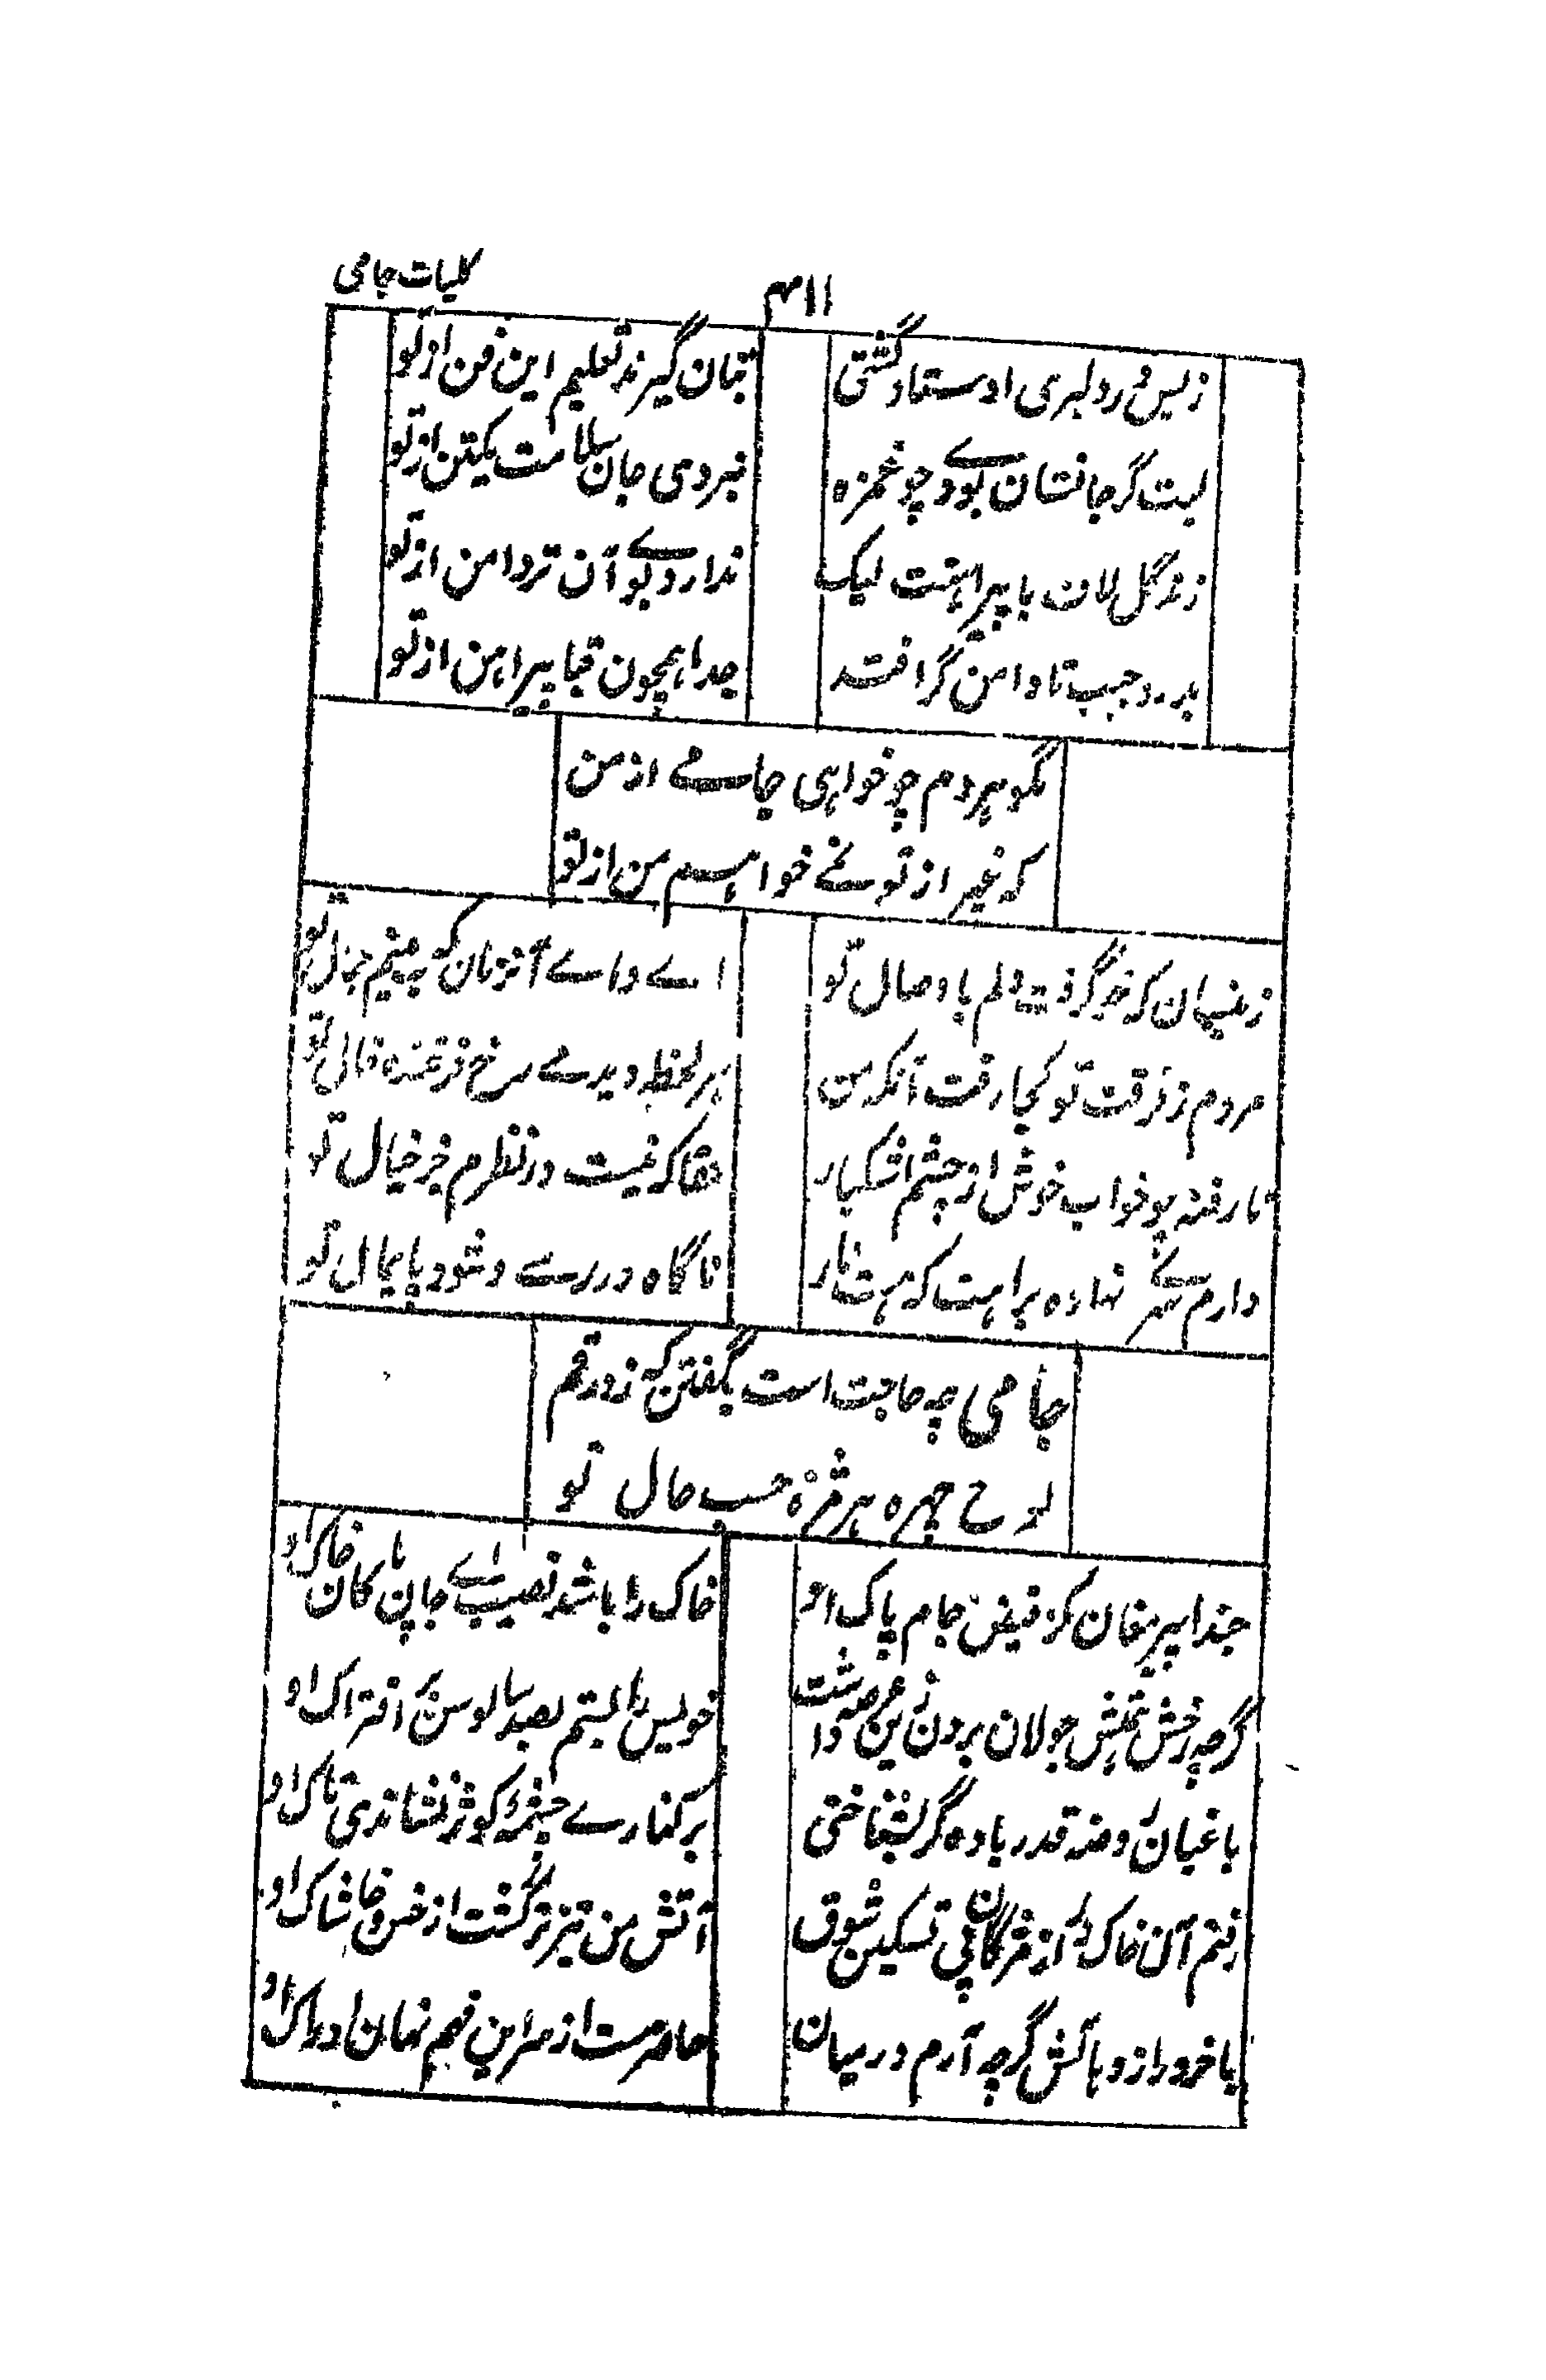 کلیات جامی
۴۱۱
زبس در دلبری اوستاد گشتی
بتان گیرند تعلیم این فن از تو
لبت گر جانشان بودے چو غمزه
نبردی جان سلامت یکتن از تو
زند گل لاف با پیراهنت لیک
ندارد بوے آن تردامن از تو
بدرد جیب تا دامن گر افتد
جدا همچون قبا پیراهن از تو
مگو هردم چو خواهی جامے از من
که غیر از تو نمے خواهم من از تو
زینسان که خو گرفت دلم با وصال تو
اے واے آنزمان که نه بینم جمال تو
مردم ز فرقت تو کجا رفت آنکه من
هر لحظه دیدمے رخ فرخنده فال تو
تا رفته چو خواب خوش از چشم اشکبار
حقا که نیست در نظرم جز خیال تو
دارم سرے نهاده براهت که مست ناز
ناگاه در رسے و شود پایمال تو
جامی چه حاجت است بگفتن که زد رقم
لوح چهره هر مژه حسب حال تو
حبذا پیر مغان کز فیض جام پاک او
خاک را باشد نصیب اے جان پاکان خاک او
گرچه رخش همتش جولان برون زین عرصه داشت
خویش را بستم بصد سالوس بر فتراک او
باغبان روضه قدر باده گر بشناختی
بر کنارے چشمهٔ کوثر نشاندی تاک او
رفتم آن خاک در از مژگان پی تسکین شوق
آتش من تیزتر گشت از خس و خاشاک او
با خرد راز دهانش گرچه آرم درمیان
قاصرست از سر این فهم نهان ادراک او